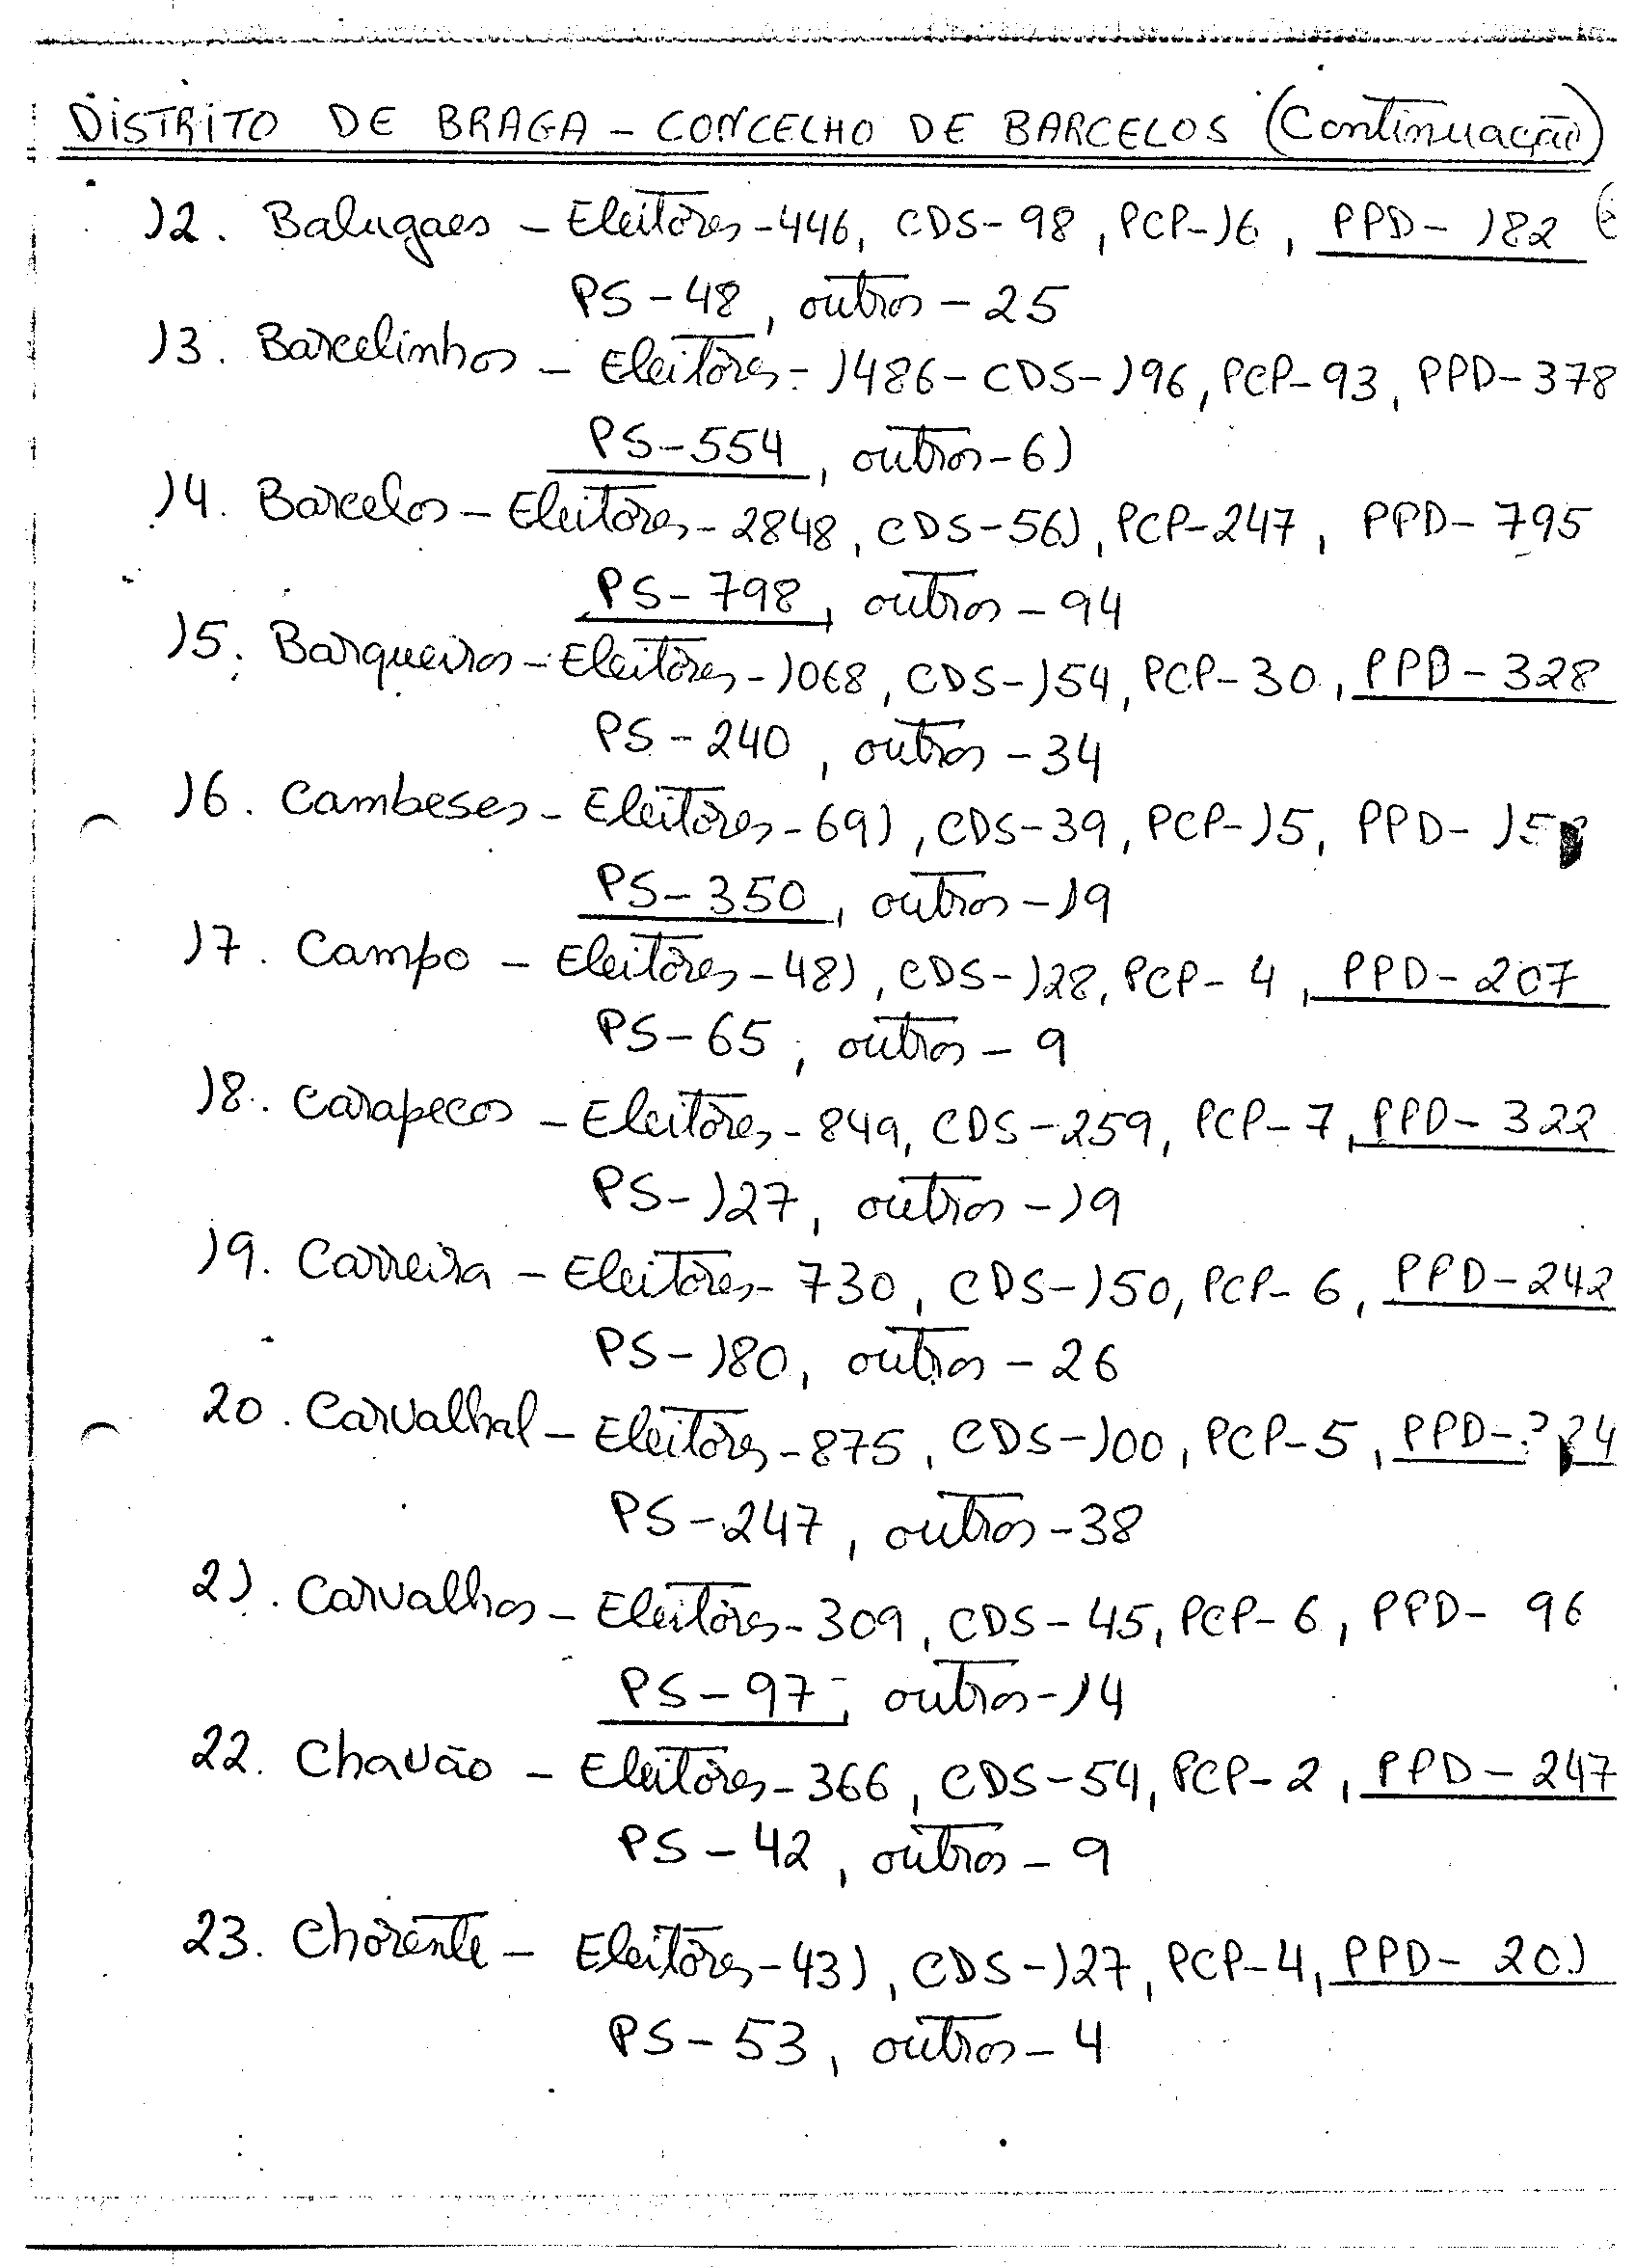 DISTRITO DE BRAGA – CONCELHO DE BARCELOS (Continuação)
12. Balugaes – Eleitores – 446, CDS – 98, PCP – 16, PPD – 182
PS – 48, outros – 25
13. Barcelinhos – Eleitores – 1486 – CDS – 196, PCP – 93, PPD – 378
PS – 554, outros – 61
14. Barcelos – Eleitores – 2848, CDS – 561, PCP – 247, PPD – 795
PS – 798, outros – 94
15. Barqueiros – Eleitores – 1068, CDS – 154, PCP – 30, PPD – 328
PS – 240, outros – 34
16. Cambeses – Eleitores – 691, CDS – 39, PCP – 15, PPD –
PS – 350, outros – 19
17. Campo – Eleitores – 481, CDS – 128, PCP – 4, PPD – 207
PS – 65, outros – 9
18. Carapecos – Eleitores – 849, CDS – 259, PCP – 7, PPD – 322
PS – 127, outros – 19
19. Carreira – Eleitores – 730, CDS – 150, PCP – 6, PPD – 242
PS – 180, outros – 26
20. Carvalhal – Eleitores – 875, CDS – 100, PCP – 5, PPD –
PS – 247, outros – 38
21. Carvalhos – Eleitores – 309, CDS – 45, PCP – 6, PPD – 96
PS – 97, outros – 14
22. Chavão – Eleitores – 366, CDS – 54, PCP – 2, PPD – 247
PS – 42, outros – 9
23. Chorente – Eleitores – 431, CDS – 127, PCP – 4, PPD – 201
PS – 53, outros – 4